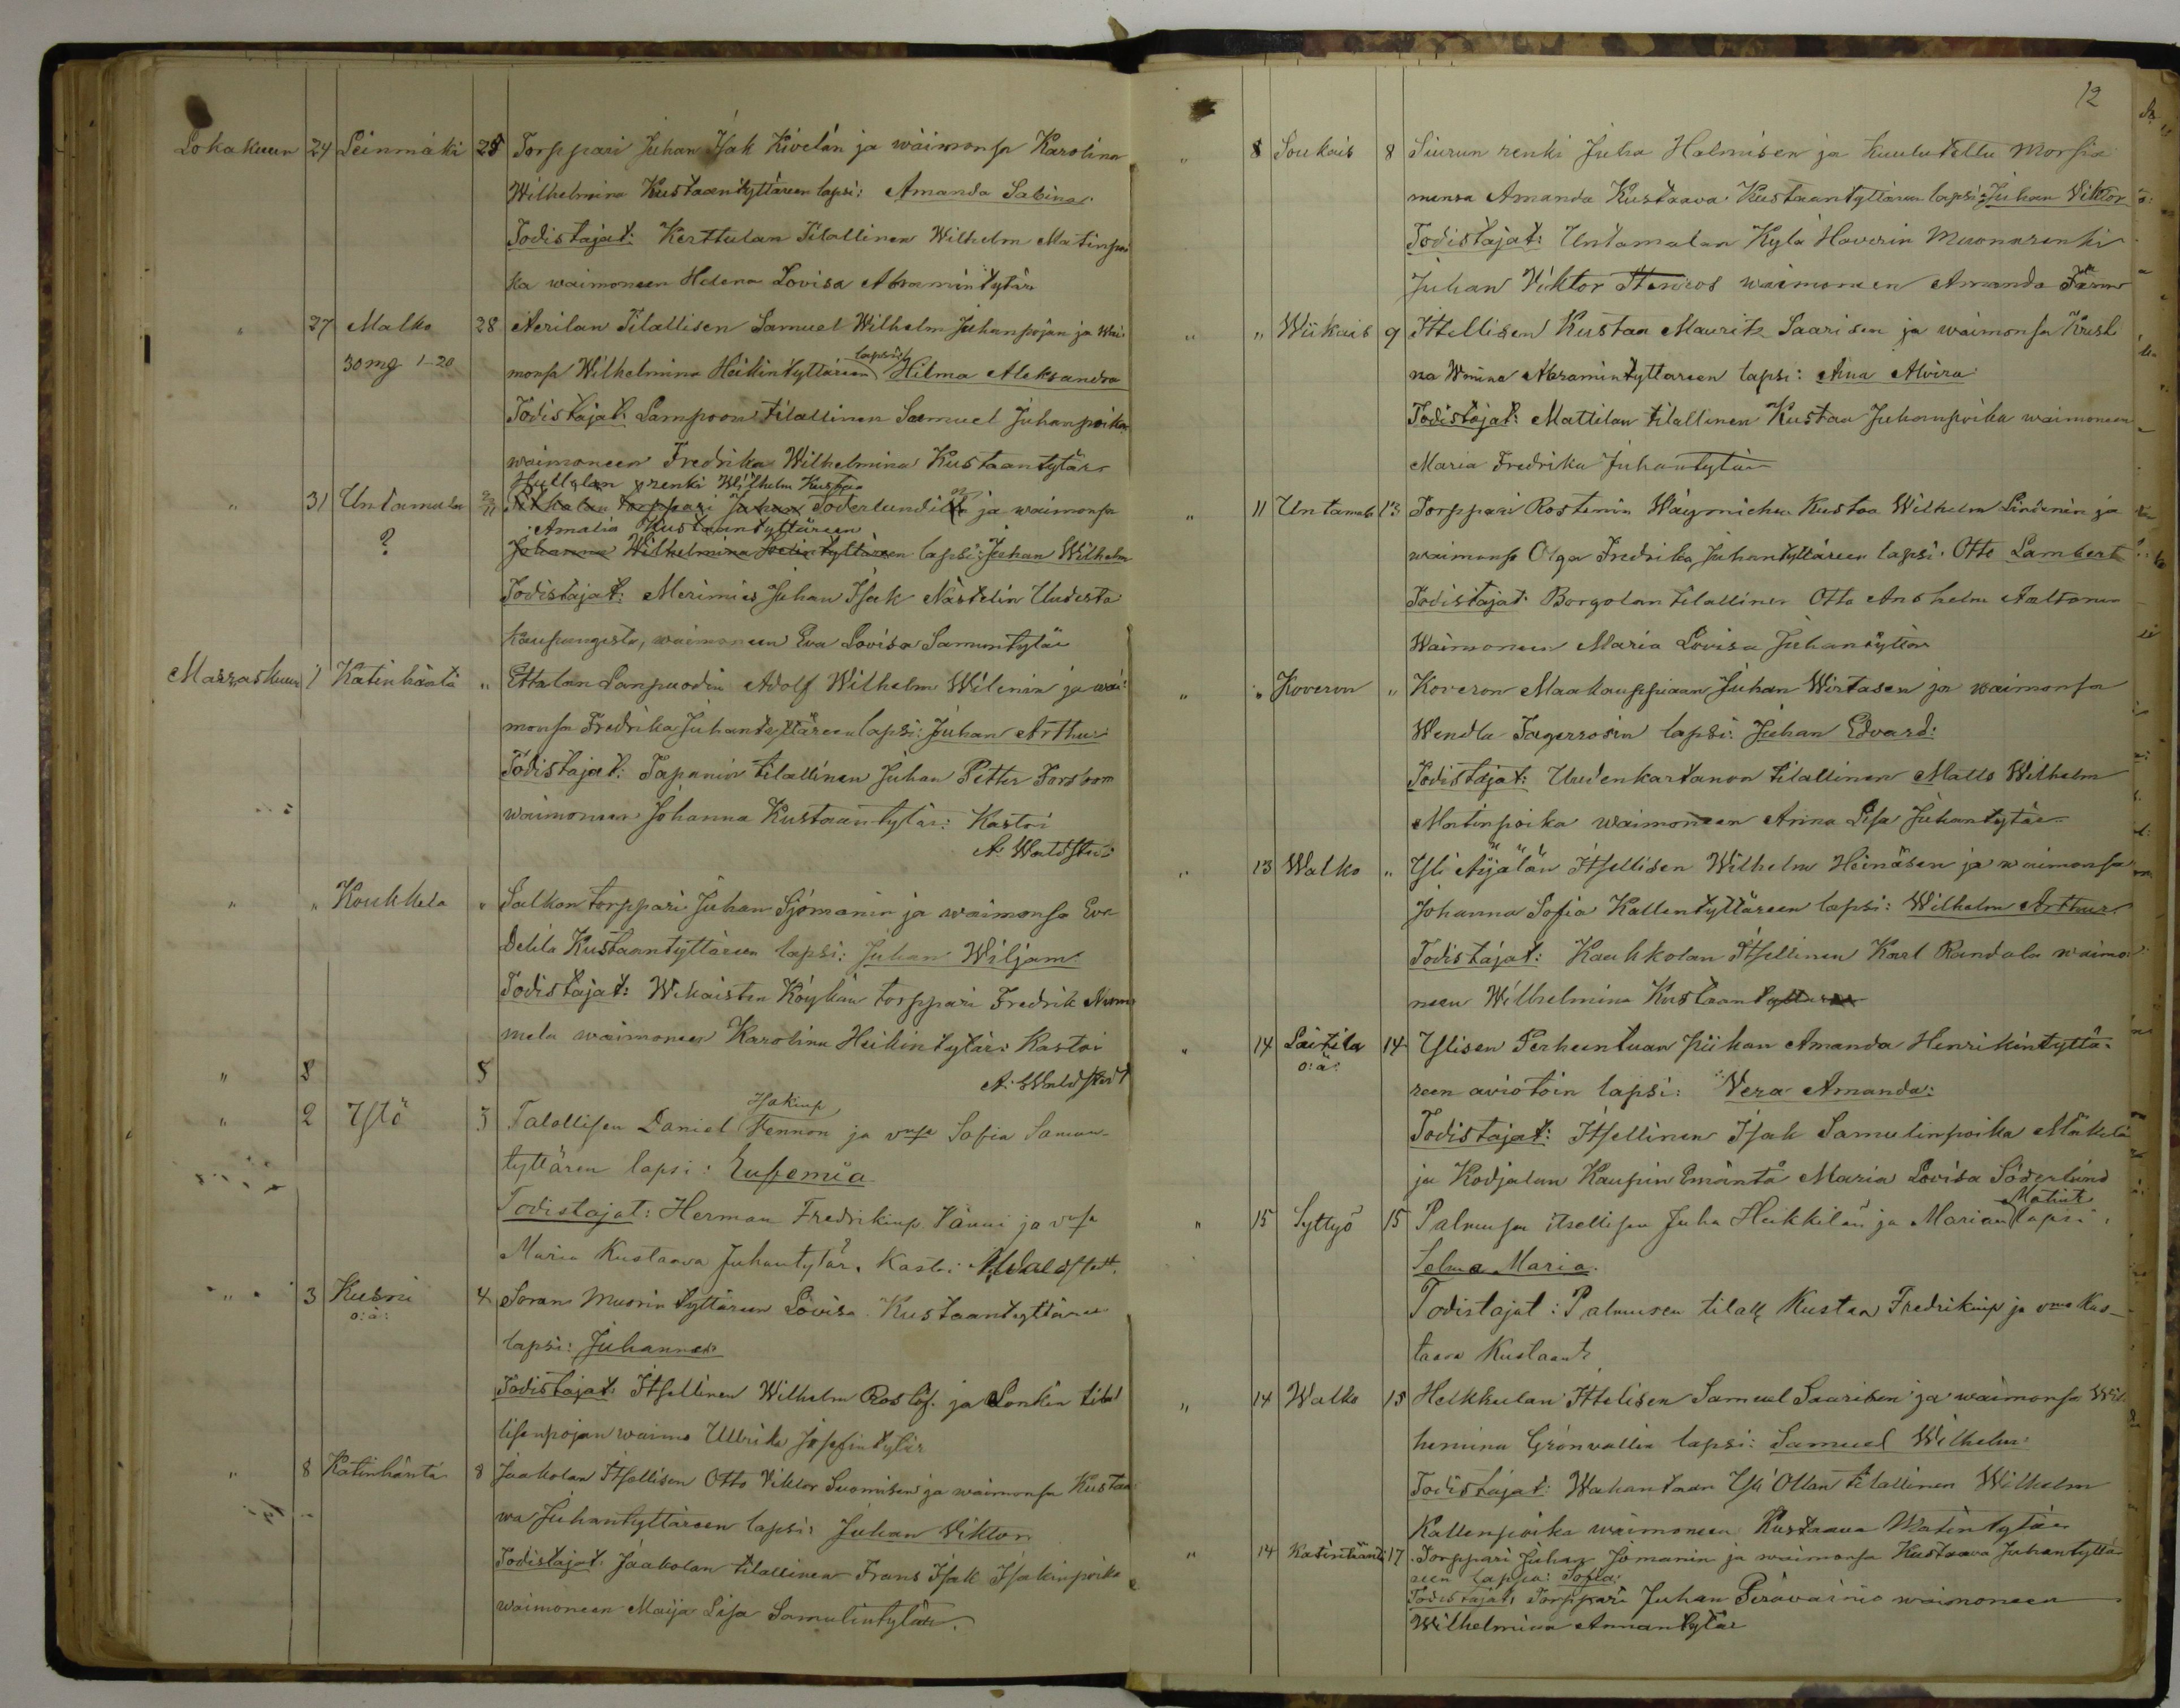 Lokakuun 24 Leinmäki 25 Torppari Juhan Isak Kivelän ja waimonsa Karolina
Wilhelmina Kustaantyttäreen lapsi: Amanda Sabina
Todistajat: Kerttulan Tilallinen Wilhelm Matinpoi
ka waimoneen Helena Lovisa Abramintytär
" 27 Malko 28 Aerilan Tilallisen Samuel Wilhelm Juhanpojan ja wai
30 mg 1-20 monsa Wilhelmina Heikintyttäreen lapsi: Hilma Aleksandra
Todistajat. Lampoon tilallinen Samuel Juhanpoika
waimoneen Fredrika Wilhelmina Kustaantytär
Hullolan renki Wilhelm Kustaa
" 31 Untamala Juhan Söderlundin ja waimonsa
Amalia Kustaantyttäreen
? Johanna Wilhelmina lapsi: Juhan Wilhelm
Todistajat: Merimies Juhan Isak Nästelin Uudesta
kaupungista, waimoneen Eva Lovisa Samuntytär
Marraskuun 1 Katinhäntä " Ettalan Lanpuodin Adolf Wilhelm Wilenin ja wai
monsa Fredrika Juhantyttäreen lapsi: Juhan Arthur
Todistajat: Tapanin tilallinen Juhan Petter Forsbom
waimoneen Johanna Kustaantytär: Kastoi
A. Waldstedt
" " Koukkela " Salkon torppari Juhan Sjömanin ja waimonsa Eva
Delila Kustaantyttäreen lapsi: Juhan Wiljam
Todistajat: Wikaisten Köykän torppari Fredrik Numme
mela waimoneen Karolina Heikintytär: Kastoi
" 8 5 A. Waldstedt
" 2 Ystö 3 Talollisen Daniel Isakinp Fennon ja vmsa Sofia Samun-
tyttären lapsi: Eufemia
Todistajat: Herman Fredrikinp Vänni ja vmsa
Maria Kustaava Juhantytär. Kastoi A. Waldstedt.
" 3 Kusni 4 Soran Muorin tyttäreen Lovisa Kustaantyttären
o: ä: lapsi: Juhannes
Todistajat: Itsellinen Wilhelm Roslöf. ja Lonkin tilal
lisenpojan waimo Ulrika Josefintytär
" 8 Katinhäntä 8 Jaakolan Itsellisen Otto Viktor Suomisen ja waimonsa Kustaa
wa Juhantyttäreen lapsi: Juhan Viktor
Todistajat. Jaakolan tilallinen Frans Isak Isakinpoika
waimoneen Maija Lisa Samulintytär.
12
" 8 Soukais 8 Siurun renki Juha Halmisen ja kuulutettu morsia
mensa Amanda Kustaava Kustaantyttäreen lapsi: Juhan Viktor
Todistajat: Untamalan Kylä Hoverin Muonarenki
Juhan Viktor Stenroos waimoneen Amanda
" " Wiikais 9 Ittellisen Kustaa Maurits Saarisen ja waimonsa Kristi
na Wmina Abramintyttareen lapsi: Aina Alvira
Todistajat: Mattilan tilallinen Kustaa Juhanpoika waimoneen
Maria Fredrika Juhantytär
" 11 Untamal 13 Torppari Rostenin Wäymiehen Kustaa Wilhelm Lindenin ja
waimonsa Olga Fredrika Juhantyttäreen lapsi: Otto Lambert
Todistajat: Borgolan tilallinen Otto Anshelm Aaltonen
Waimoneen Maria Lovisa Juhantytär
" " Koveron " Koveron Maakauppiaan Juhan Wirtasen ja waimonsa
Wendla Fagerrosin lapsi: Juhan Edvard:
Todistajat: Uudenkartanon tilallinen Matts Wilhelm
Matinpoika waimoneen Anna Lisa Juhantytär
" 13 Walko " Yli Äijälän Itsellisen Wilhelm Heinäsen ja waimonsa
Johanna Sofia Kallentyttäreen lapsi: Wilhelm Arthur
Todistajat: Kaukkolan Itsellinen Karl Randala waimo
neen Wilhelmina Kustaantyttären
" 14 Laitila 14 Ylisen Perheentuan piikan Amanda Henrikintyttä-
o: ä: reen aviotoin lapsi: Vera Amanda:
Todistajat: Itsellinen Isak Samulinpoika Mäkelä
ja Kodjalan Kaupin Emäntä Maria Lovisa Söderlund
" 15 Syttyö 15 Palmusen itsellisen Juha Heikkilän ja Marian Matint lapsi:
Selma Maria.
Todistajat: Palmusen tilall Kustaa Fredrikinp ja vmo Kus-
taava Kustaant
" 14 Walko 15 Heikkulan Ittelisen Samuel Saarisen ja waimonsa Wil
hemina Grönvallin lapsi: Samuel Wilhelm
Todistajat: Wahantaan Yli Ollan tilallinen Wilhelm
Kallenpoika waimoneen Kustaava Matintytär
" 14 Katinhänt 17 Torppari Juhan Jömanin ja waimonsa Kustaava Juhantyttä
reen lapsia: Sofia:
Todistajat: Torppari Juhan Perävainio waimoneen
Wilhelmina Annantytär